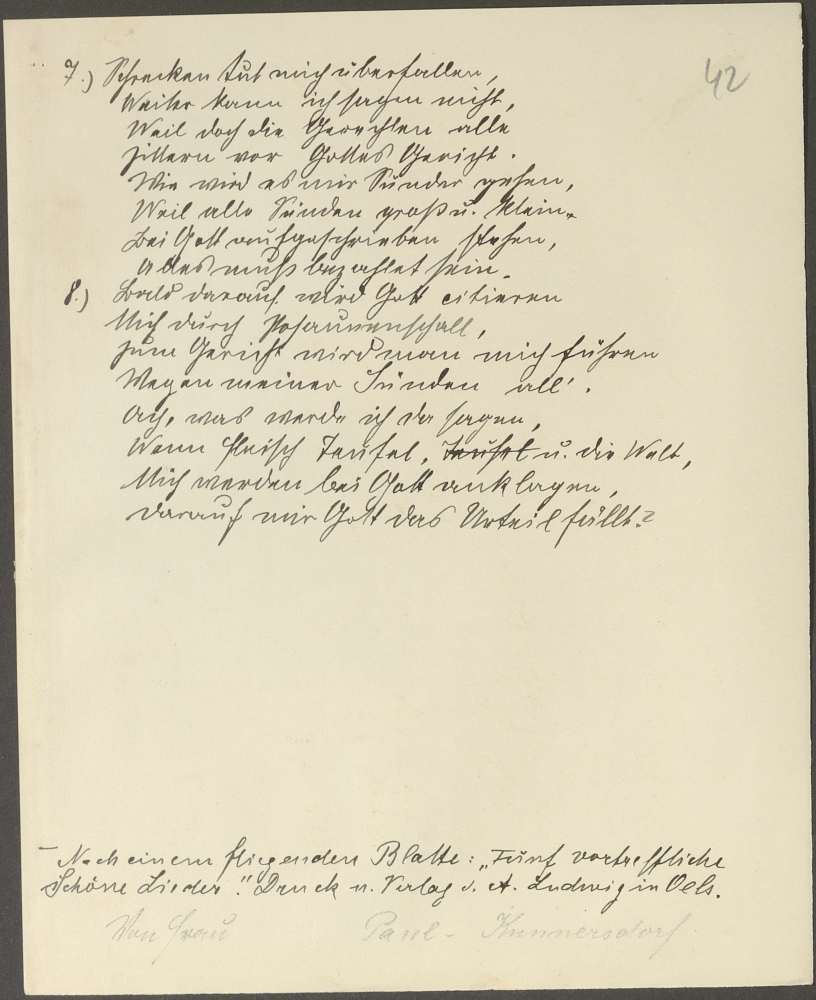 42
7.) Schrecken tut mich überfallen,
Weiter kann ich sagen nicht,
Weil doch die Gerechten alle
Zittern vor Gottes Gericht.
Wie wird es mir Sünder gehen,
Weil alle Sünden groß u. klein
Bei Gott aufgeschrieben stehen,
Alles muß bezahlet sein.
8.) Bald darauf wird Gott citieren
Mich durch Posaunenschall,
Zum Gericht wird man mich führen
Wegen meiner Sünden all'.
Ach, was werde ich da sagen,
Wenn Fleisch Teufel, Teufel u. die Welt,
Mich werden bei Gott anklagen,
Darauf mir Gott das Urteil fällt?
Nach einem fliegenden Blatte: „Fünf vortreffliche
Schöne Lieder". Druck u. Verlag v. A. Ludwig in Oels.
Von Frau Paul - Kunnersdorf